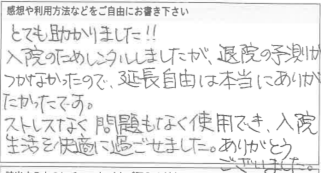 感想や利用方法などをご自由にお書き下さい
とても助かりました!!
入院のためレンタルしましたが、退院の予測が
つかなかったので、延長自由は本当にありが
たかったです。
ストレスなく問題もなく使用でき、入院
生活を快適に過ごせました。ありがとう
ございました。